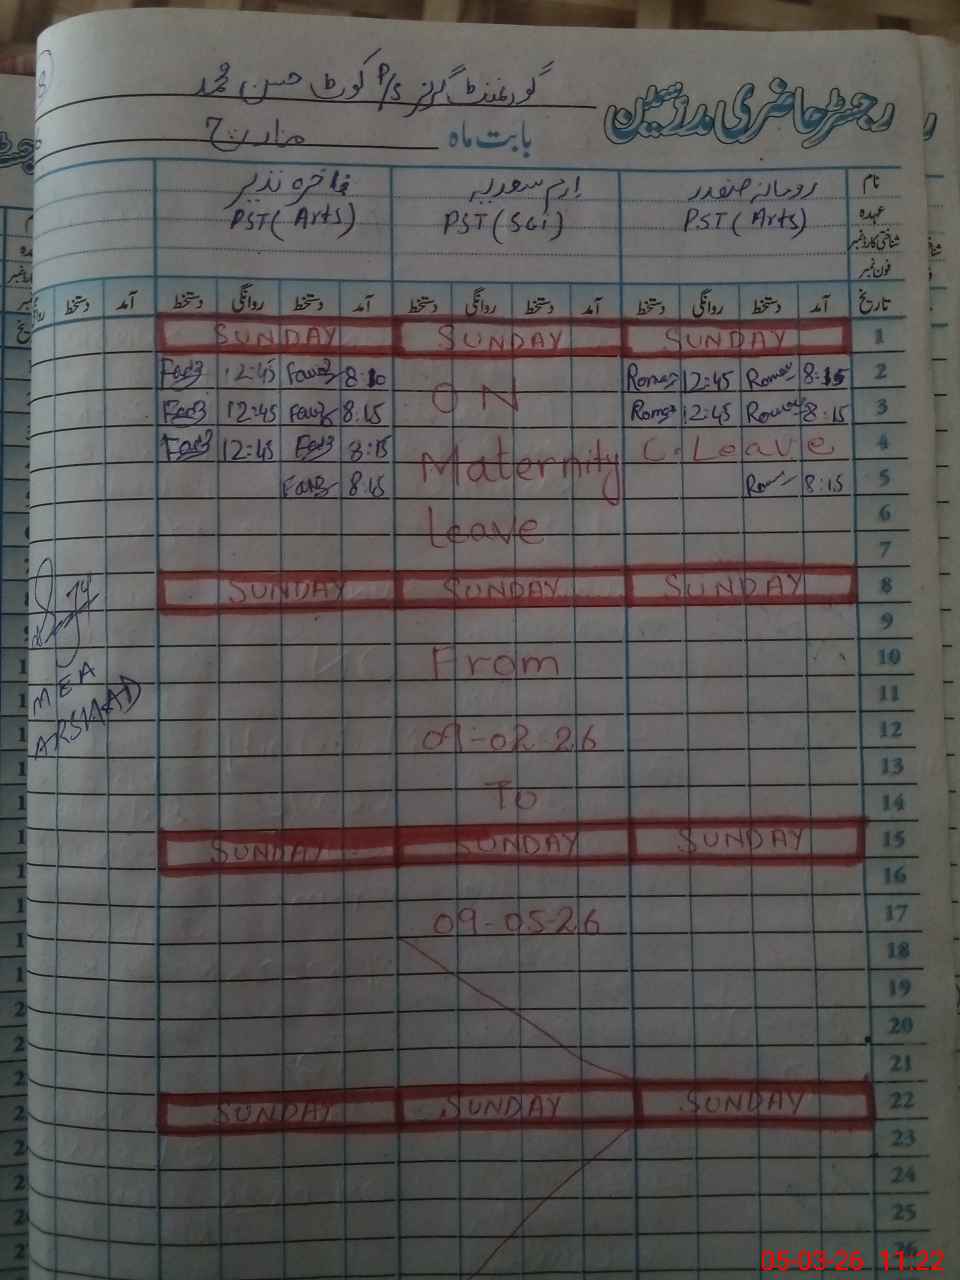 رجسٹر حاضری مدرسین
گورنمنٹ گرلز P/S کوٹ حسن محمد
بابت ماہ مارچ
نام رومانہ صفدر ارم سعدیہ فاخرہ نذیر
عہدہ PST (Arts) PST (Sci) PST (Arts)
شناختی کارڈ نمبر
فون نمبر
تاریخ آمد دستخط روانگی دستخط آمد دستخط روانگی دستخط آمد دستخط روانگی دستخط آمد دستخط
1 SUNDAY SUNDAY SUNDAY
2 8:15 12:45 8:10 12:45
3 8:15 12:45 ON 8:15 12:45
4 C. Leave Maternity 8:15 12:45
5 8:15 8:15
6 Leave
7
8 SUNDAY SUNDAY SUNDAY
9
10 From
11
12 09-02-26
13
14 To
15 SUNDAY SUNDAY SUNDAY
16
17 09-05-26
18
19
20
21
22 SUNDAY SUNDAY SUNDAY
23
24
25
26
MEA
ARSHAD
05-03-26 11:22